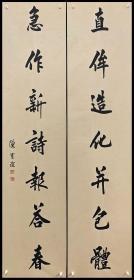 直侔造化并包體
急作新詩報答春